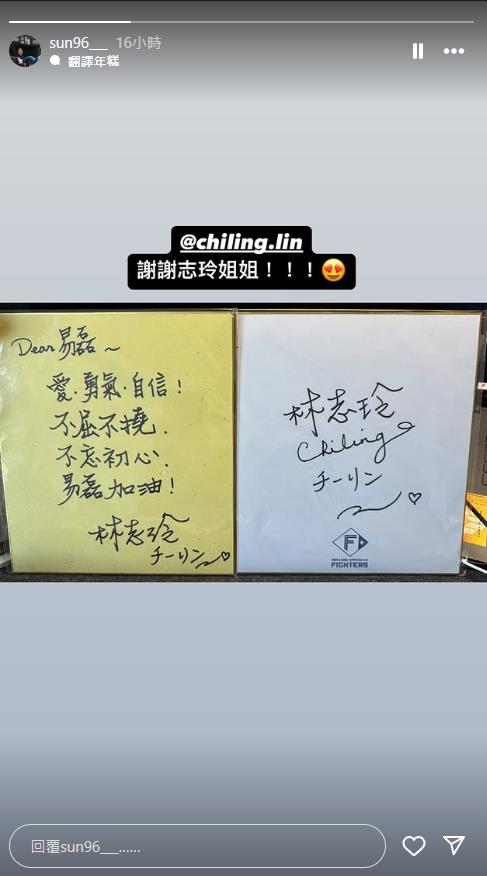 sun96___ 16小時
翻譯年糕
@chiling.lin
謝謝志玲姐姐！！！😍
Dear 易磊～
愛·勇氣·自信！
不屈不撓.
不忘初心.
易磊加油！
林志玲
チーリン♡
林志玲
Chiling
チーリン
♡
F
HOKKAIDO NIPPON-HAM
FIGHTERS
回覆sun96___......